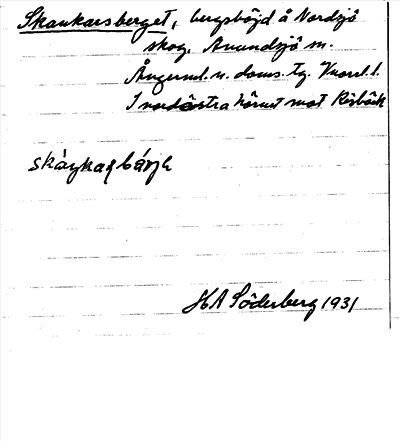 Skankarsberget, bergshöjd å Nordsjö
skog, Anundsjö sn.
Ångerml. n. doms. tg. Vnorrl. l.
I nordöstra hörnet mot Risbäck
skàŋkaʂbárjə
HA Söderberg 1931